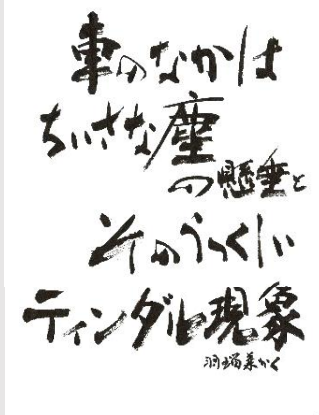 車のなかは
ちいさな塵
の懸垂と
そのうつくしい
ティンダル現象
羽瑠菜かく